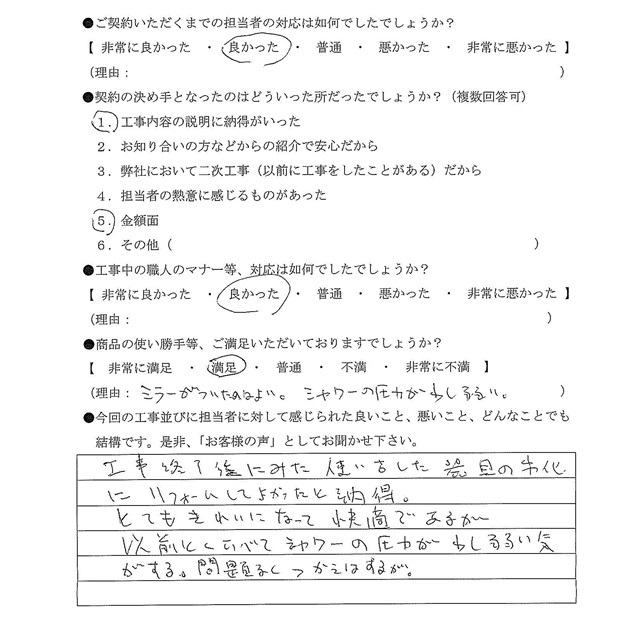 ●ご契約いただくまでの担当者の対応は如何でしたでしょうか？
【 非常に良かった ・ 良かった ・ 普通 ・ 悪かった ・ 非常に悪かった 】
（理由： ）
●契約の決め手となったのはどういった所だったでしょうか？（複数回答可）
1．工事内容の説明に納得がいった
2．お知り合いの方などからの紹介で安心だから
3．弊社において二次工事（以前に工事をしたことがある）だから
4．担当者の熱意に感じるものがあった
5．金額面
6．その他（ ）
●工事中の職人のマナー等、対応は如何でしたでしょうか？
【 非常に良かった ・ 良かった ・ 普通 ・ 悪かった ・ 非常に悪かった 】
（理由： ）
●商品の使い勝手等、ご満足いただいておりますでしょうか？
【 非常に満足 ・ 満足 ・ 普通 ・ 不満 ・ 非常に不満 】
（理由： ミラーがついたのはよい。 シャワーの圧力が少し弱い。 ）
●今回の工事並びに担当者に対して感じられた良いこと、悪いこと、どんなことでも
結構です。是非、「お客様の声」としてお聞かせ下さい。
工事終了後にみた 使いました 器具の劣化
に リフォームしてよかったと納得。
とてもきれいになって 快適であるが
以前とくらべて シャワーの圧力が 少し弱い気
がする。問題なく つかえはするが。